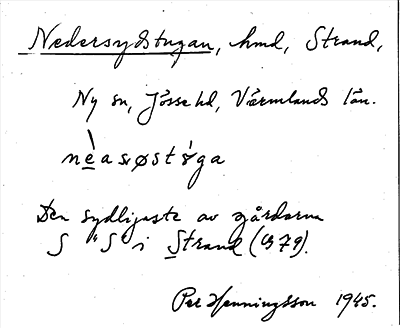 Nedersydstugan, hmd, Strand,
Ny sn, Jösse hd, Värmlands län.
nèasøstὠga
Den sydligaste av gårdarna
S "S" i Strand (979).
Per Henningsson 1945.